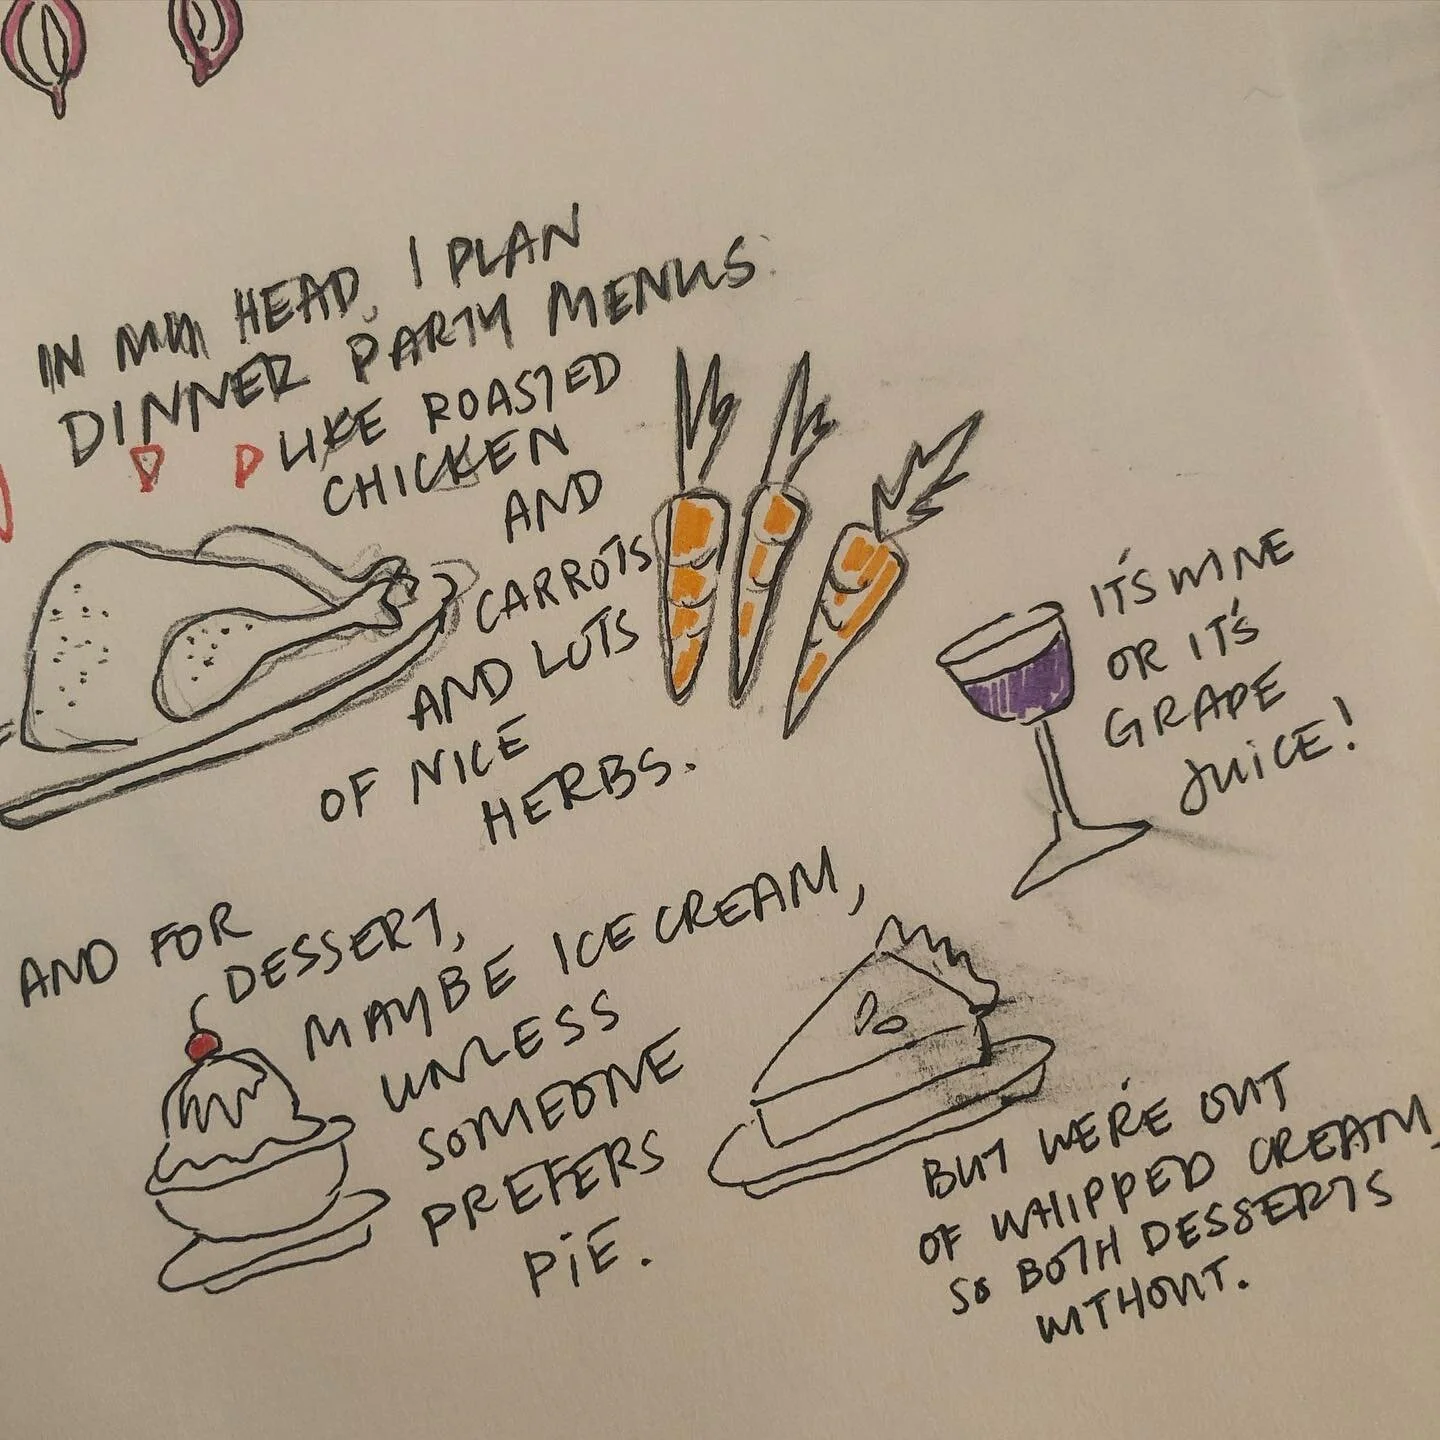 IN MY HEAD, I PLAN
DINNER PARTY MENUS
LIKE ROASTED
CHICKEN
AND
CARROTS
AND LOTS
OF NICE
HERBS.
IT'S WINE
OR IT'S
GRAPE
JUICE!
AND FOR
DESSERT,
MAYBE ICE CREAM,
UNLESS
SOMEONE
PREFERS
PIE.
BUT WE'RE OUT
OF WHIPPED CREAM,
SO BOTH DESSERTS
WITHOUT.